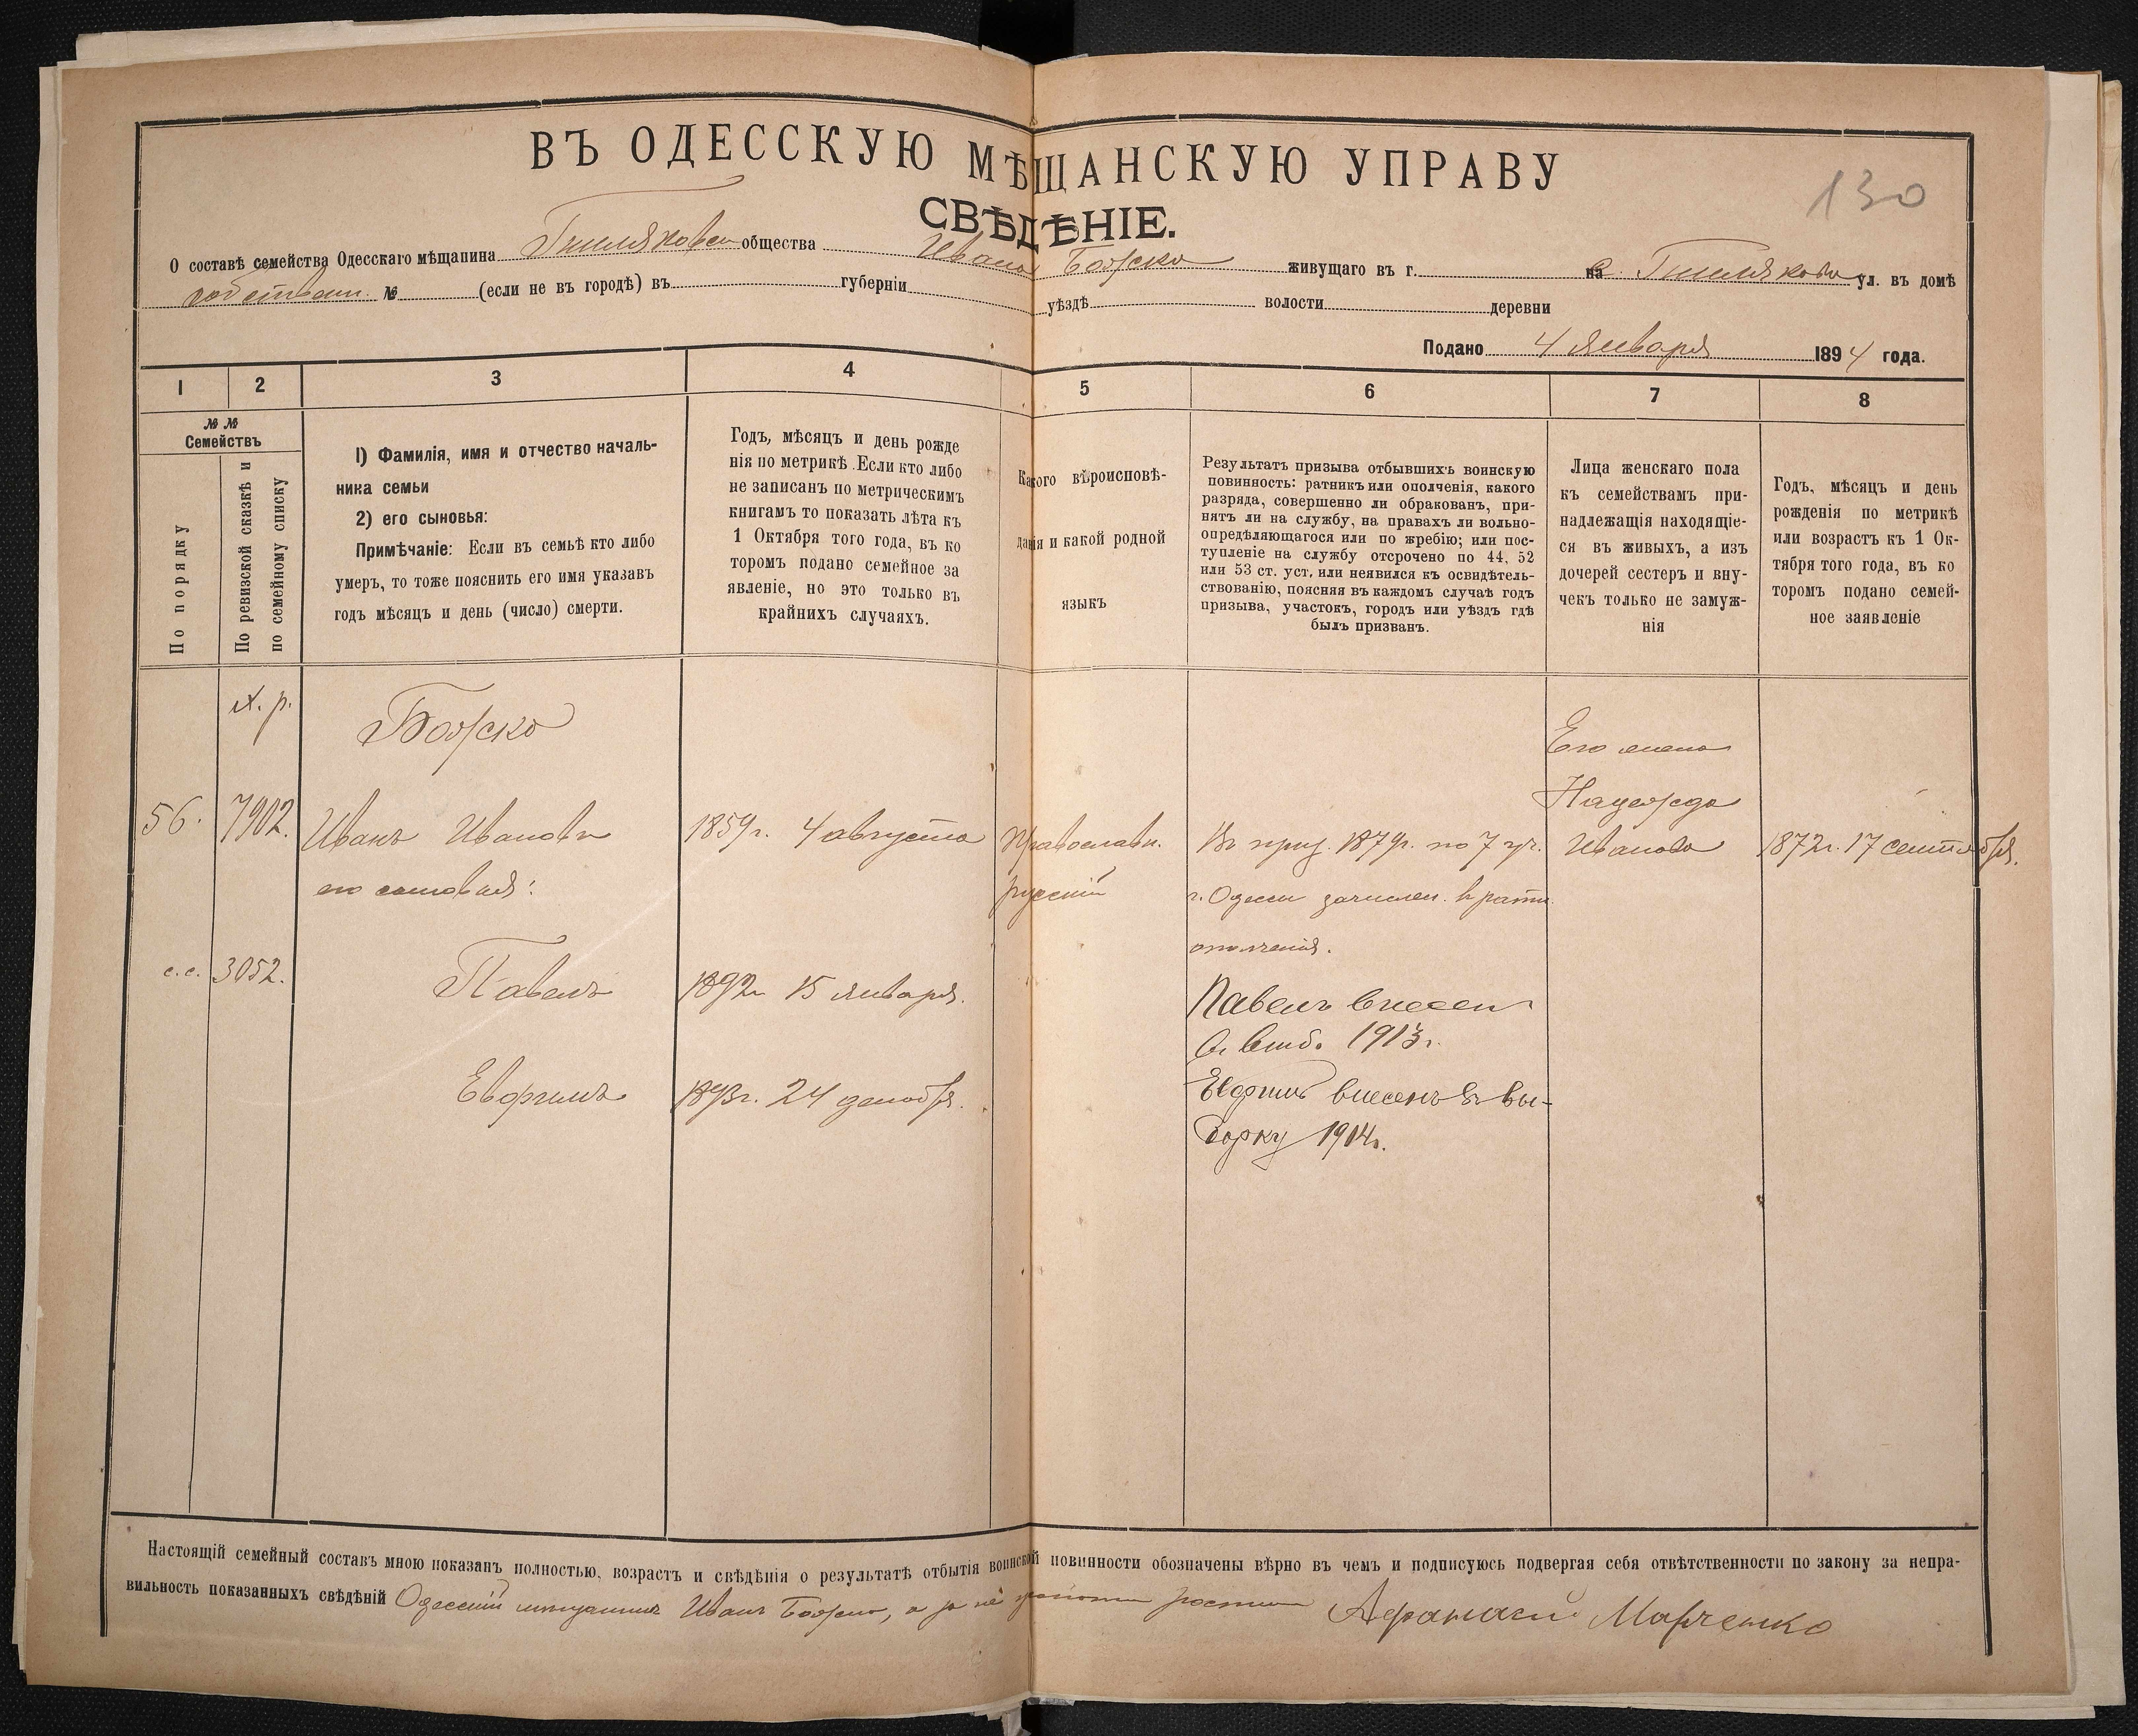 ВЪ ОДЕССКУЮ МѢЩАНСКУЮ УПРАВУ
130
СВѢДѢНІЕ.
О составѣ семейства Одесскаго мѣщанина Гниляковск общества Ивана живущаго въ г. на с. Гниляково ул. въ домѣ
собствен. № (если не въ городѣ) въ губерніи уѣздѣ волости деревни
Подано 4 Января 1894 года.
1 2 3 4 5 6 7 8
№ №
Семействъ
По порядку
По ревизской сказкѣ и
по семейному списку
1) Фамилія, имя и отчество началь-
ника семьи
2) его сыновья:
Примѣчаніе: Если въ семьѣ кто либо
умеръ, то тоже пояснить его имя указавъ
годъ мѣсяцъ и день (число) смерти.
Годъ, мѣсяцъ и день рожде
нія по метрикѣ. Если кто либо
не записанъ по метрическимъ
книгамъ то показать лѣта къ
1 Октября того года, въ ко
торомъ подано семейное за
явленіе, но это только въ
крайнихъ случаяхъ.
Какого вѣроисповѣ-
данія и какой родной
языкъ
Результатъ призыва отбывшихъ воинскую
повинность: ратникъ или ополченія, какого
разряда, совершенно ли обракованъ, при-
нятъ ли на службу, на правахъ ли вольно-
опредѣляющагося или по жребію; или пос-
тупленіе на службу отсрочено по 44, 52
или 53 ст. уст. или неявился къ освидѣтель-
ствованію, поясняя въ каждомъ случаѣ годъ
призыва, участокъ, городъ или уѣздъ гдѣ
былъ призванъ.
Лица женскаго пола
къ семействамъ при-
надлежащія находящіе-
ся въ живыхъ, а изъ
дочерей сестеръ и вну-
чекъ только не замуж-
нія
Годъ, мѣсяцъ и день
рожденія по метрикѣ
или возрастъ къ 1 Ок-
тября того года, въ ко
торомъ подано семей-
ное заявленіе
Его жена
Надежда
56. 7902. Иванъ Ивановъ 1859 г. 4 августа Православн. Въ приз. 1879г. по 7 уч. Иванова 1872г. 17 сентября.
его сыновья: русскій г. Одессы зачислен. въ ратн.
ополченія.
с.с. 3052. Павелъ 1892г 15 января. Павелъ внесен
1913г.
Евфимъ 1893г. 24 декабря. Евфимъ внесенъ въ вы-
борку 1914г.
Настоящій семейный составъ мною показанъ полностью, возрастъ и свѣдѣнія о результатѣ отбытія воинской повинности обозначены вѣрно въ чемъ и подписуюсь подвергая себя отвѣтственности по закону за непра-
вильность показанныхъ свѣдѣній Одесскій мѣщанинъ Иванъ а за не Афанасій Марченко